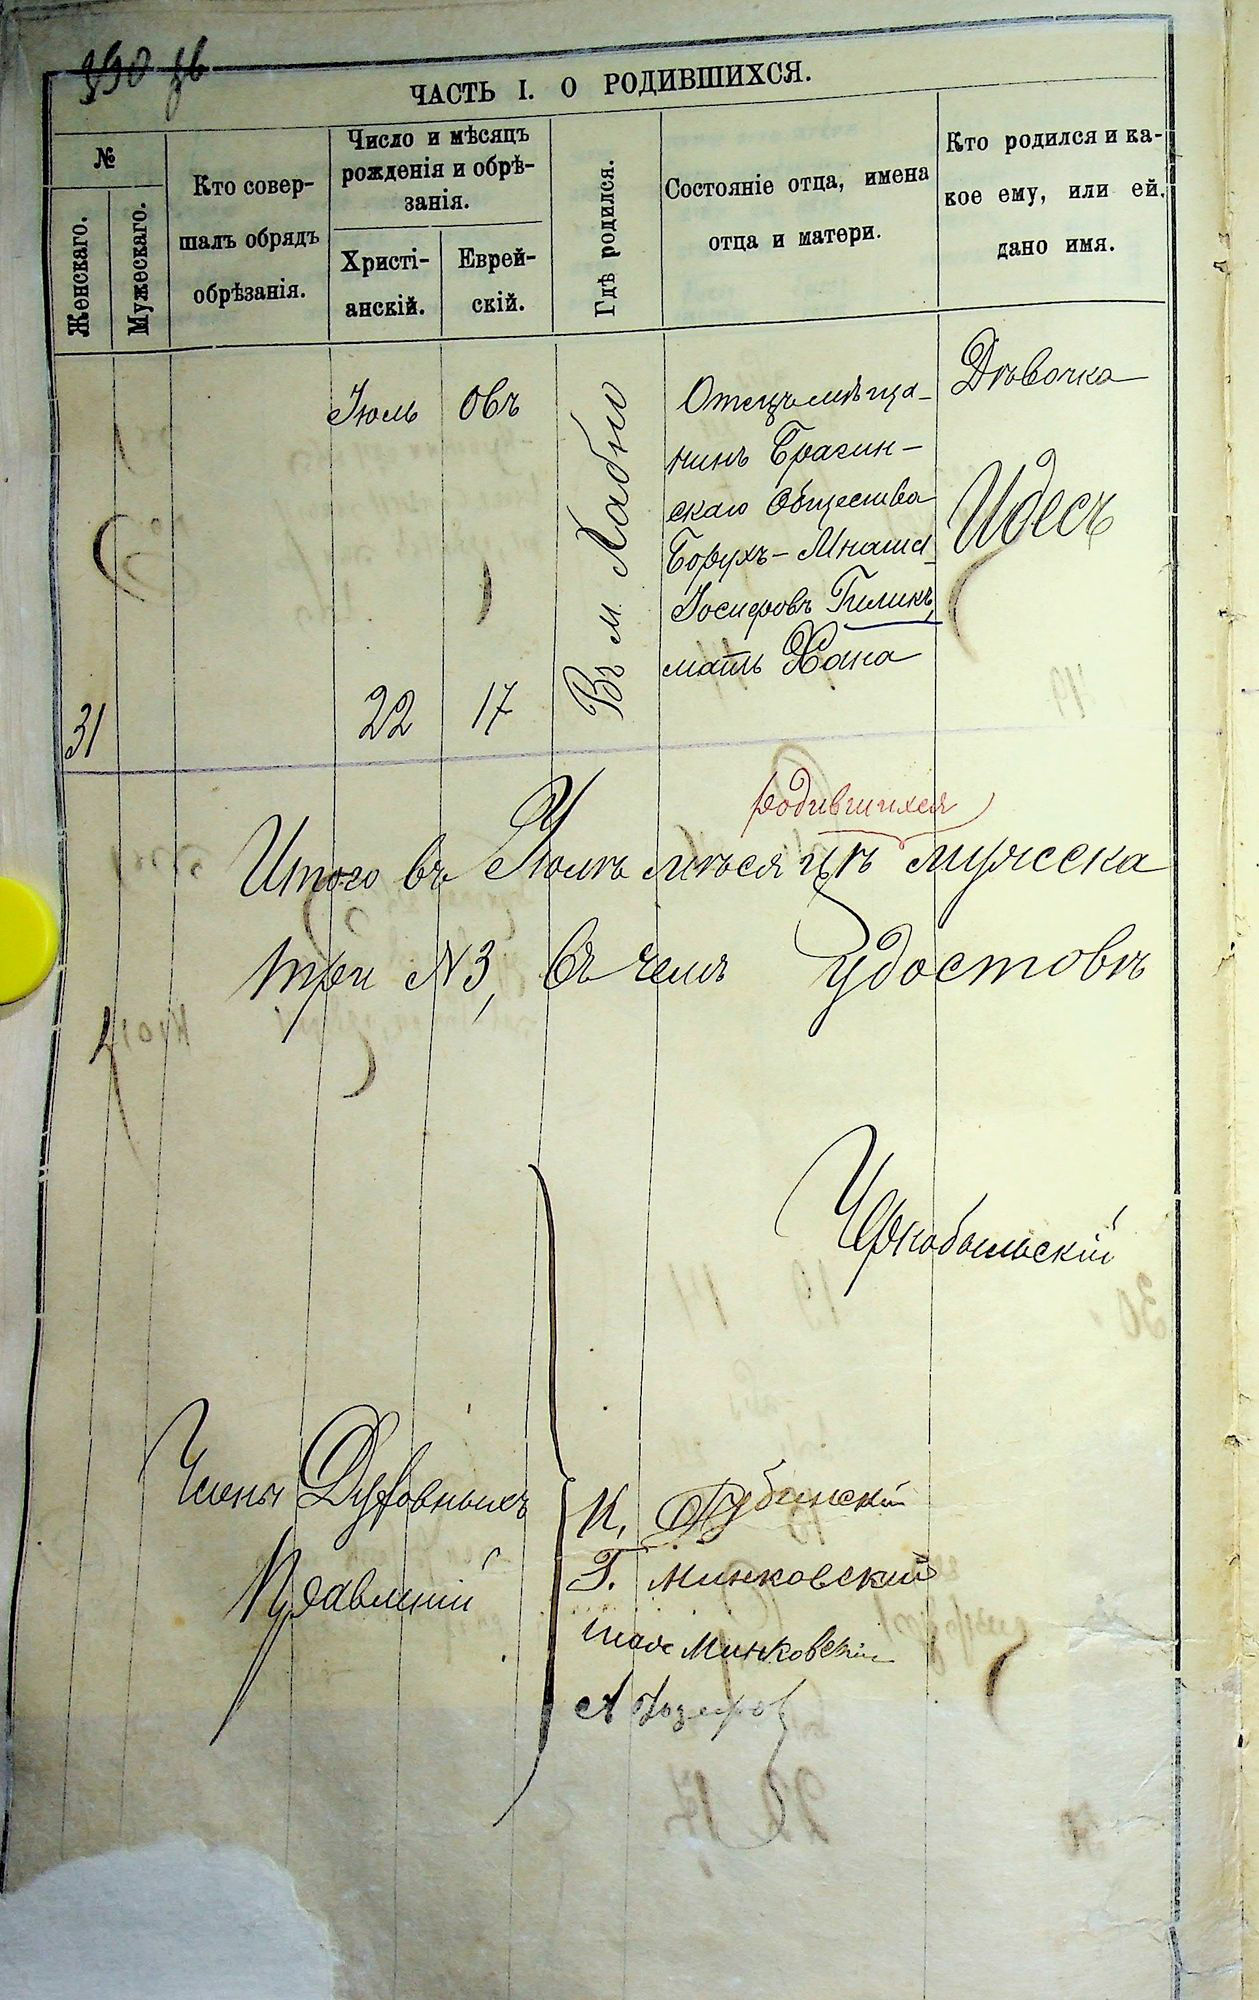 ЧАСТЬ I. О РОДИВШИХСЯ.
№
Женскаго.
Мужескаго.
Кто совер-
шалъ обрядъ
обрѣзанія.
Число и мѣсяцъ
рожденія и обрѣ-
занія.
Христі-
анскій.
Еврей-
скій.
Гдѣ родился.
Состояніе отца, имена
отца и матери.
Кто родился и ка-
кое ему, или ей,
дано имя.
31
Іюль
22
Овъ
17
Въ м. Хабно
Отецъ мѣща-
нинъ Брагин-
скаго Общества
Борухъ-Мнаша
Іосифовъ Гиликъ,
мать Хана
Дѣвочка
Идесъ
родившихся
Итого въ Іюлѣ мѣсяцѣ мужеска
три №3, въ чемъ удостовѣ
Чернобыльскій
Члены Духовныхъ
Правленій
И. Губинскій
Г. Минковский
Минковскій
А